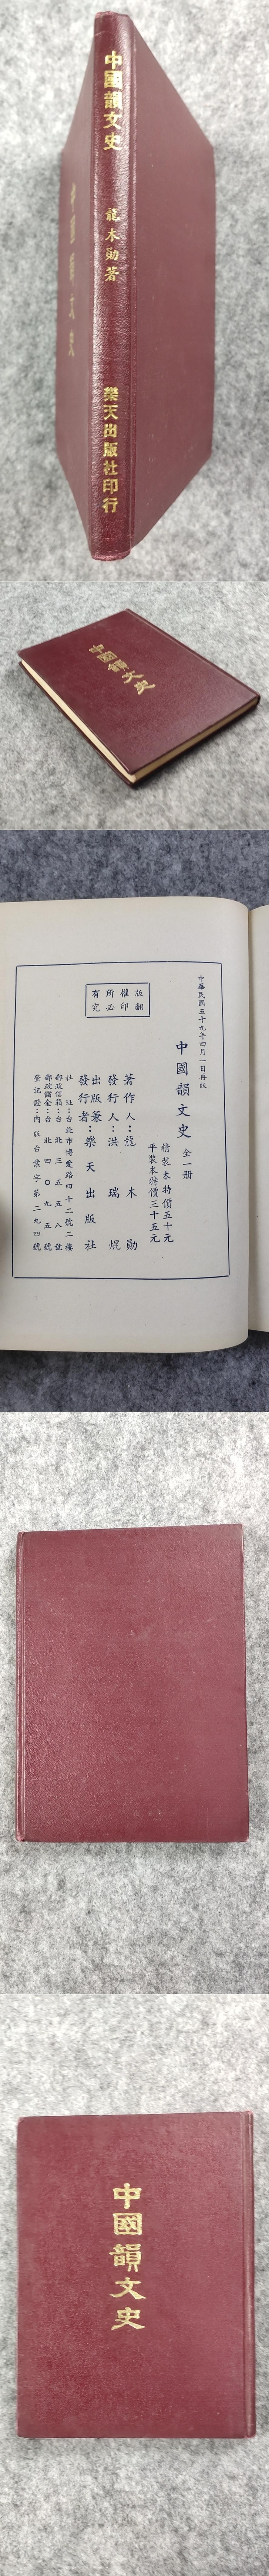 中國韻文史
龍木勛著
樂天出版社印行
中國韻文史
中國韻文史
中華民國五十九年四月一日再版
中國韻文史 全一冊
精裝本特價五十元
平裝本特價三十五元
著作人：龍木勛
發行人：洪瑞焜
出版兼發行者：樂天出版社
社址：台北市博愛路四十二號二樓
郵政信箱：台北三五五八號
郵政儲金：台北四〇九五號
登記證：內版台業字第二九四號
版權所有
翻印必究
中國韻文史